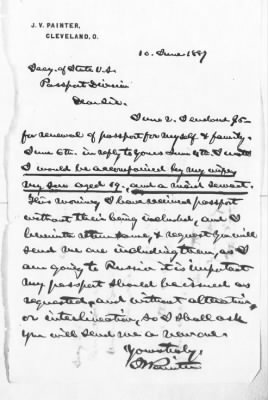 J. V. PAINTER,
CLEVELAND, O.
10. June 1889
Secy. of State U.S.
Passport Division
Dear Sir.
June 2. I enclosed $5-
for renewal of passport for myself & family.
June 6th. in reply to yours June 4th. I wrote
I would be accompanied by my wife,
my son aged 19. and a maid servant.
This morning I have received passport
without their being included, and I
herewith return same, & request you will
send me one including them, as I
am going to Russia it is important
my passport should be issued as
requested, and without alteration
or interlineation, so I shall ask
you will send me a new one.
Yours truly,
J V Painter